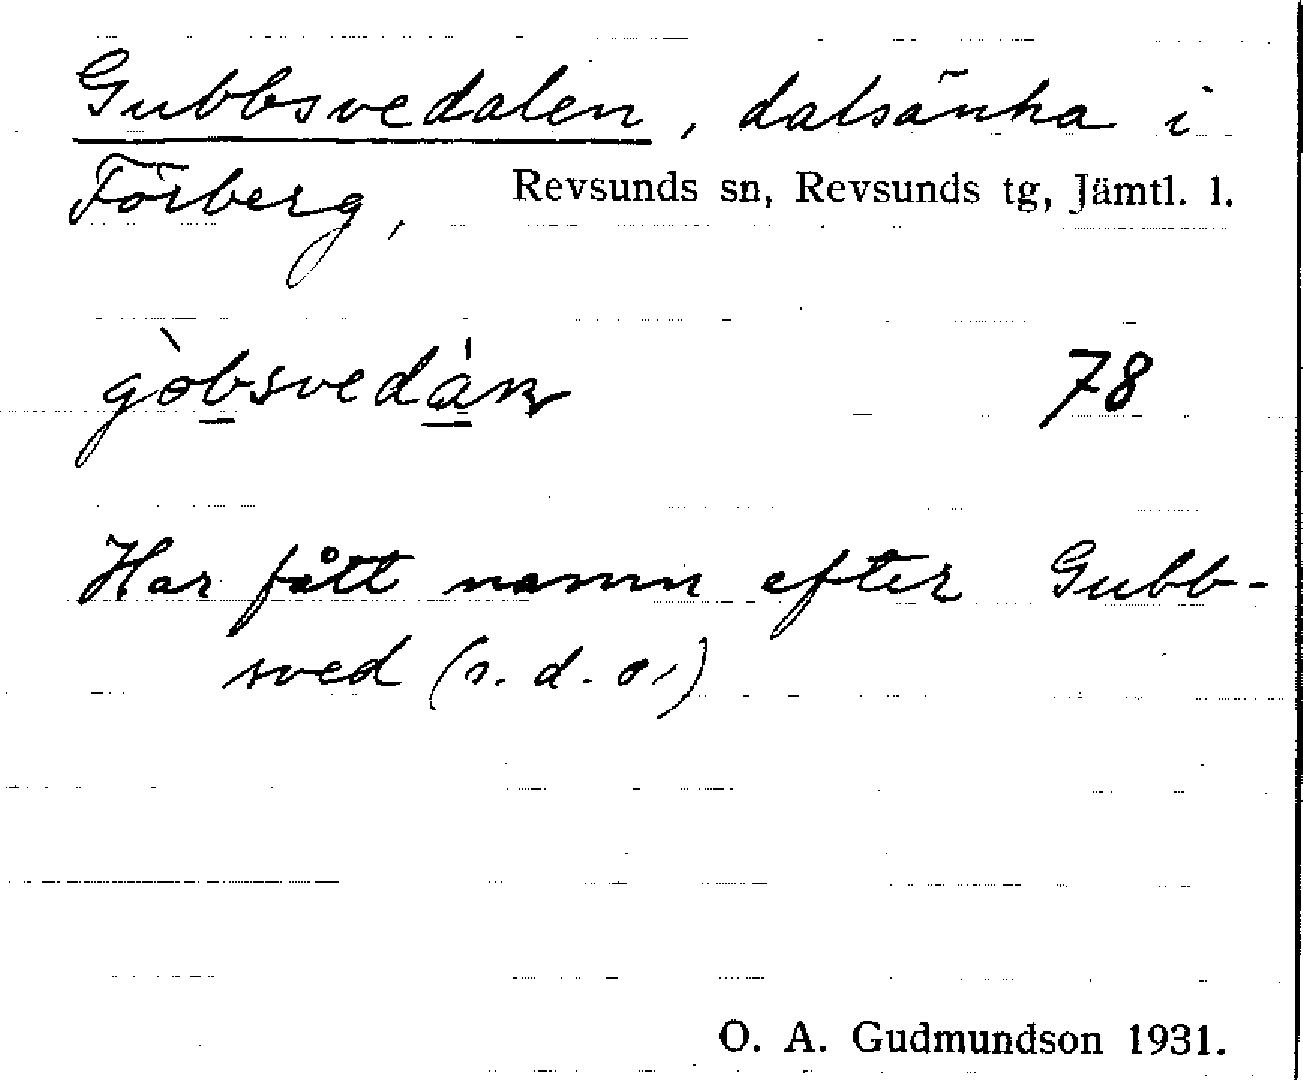 Gubbsvedalen, dalsänka i
Förberg, Revsunds sn, Revsunds tg, Jämtl. l.
78
Har fått namn efter Gubb-
sved (s. d. o.)
O. A. Gudmundson 1931.